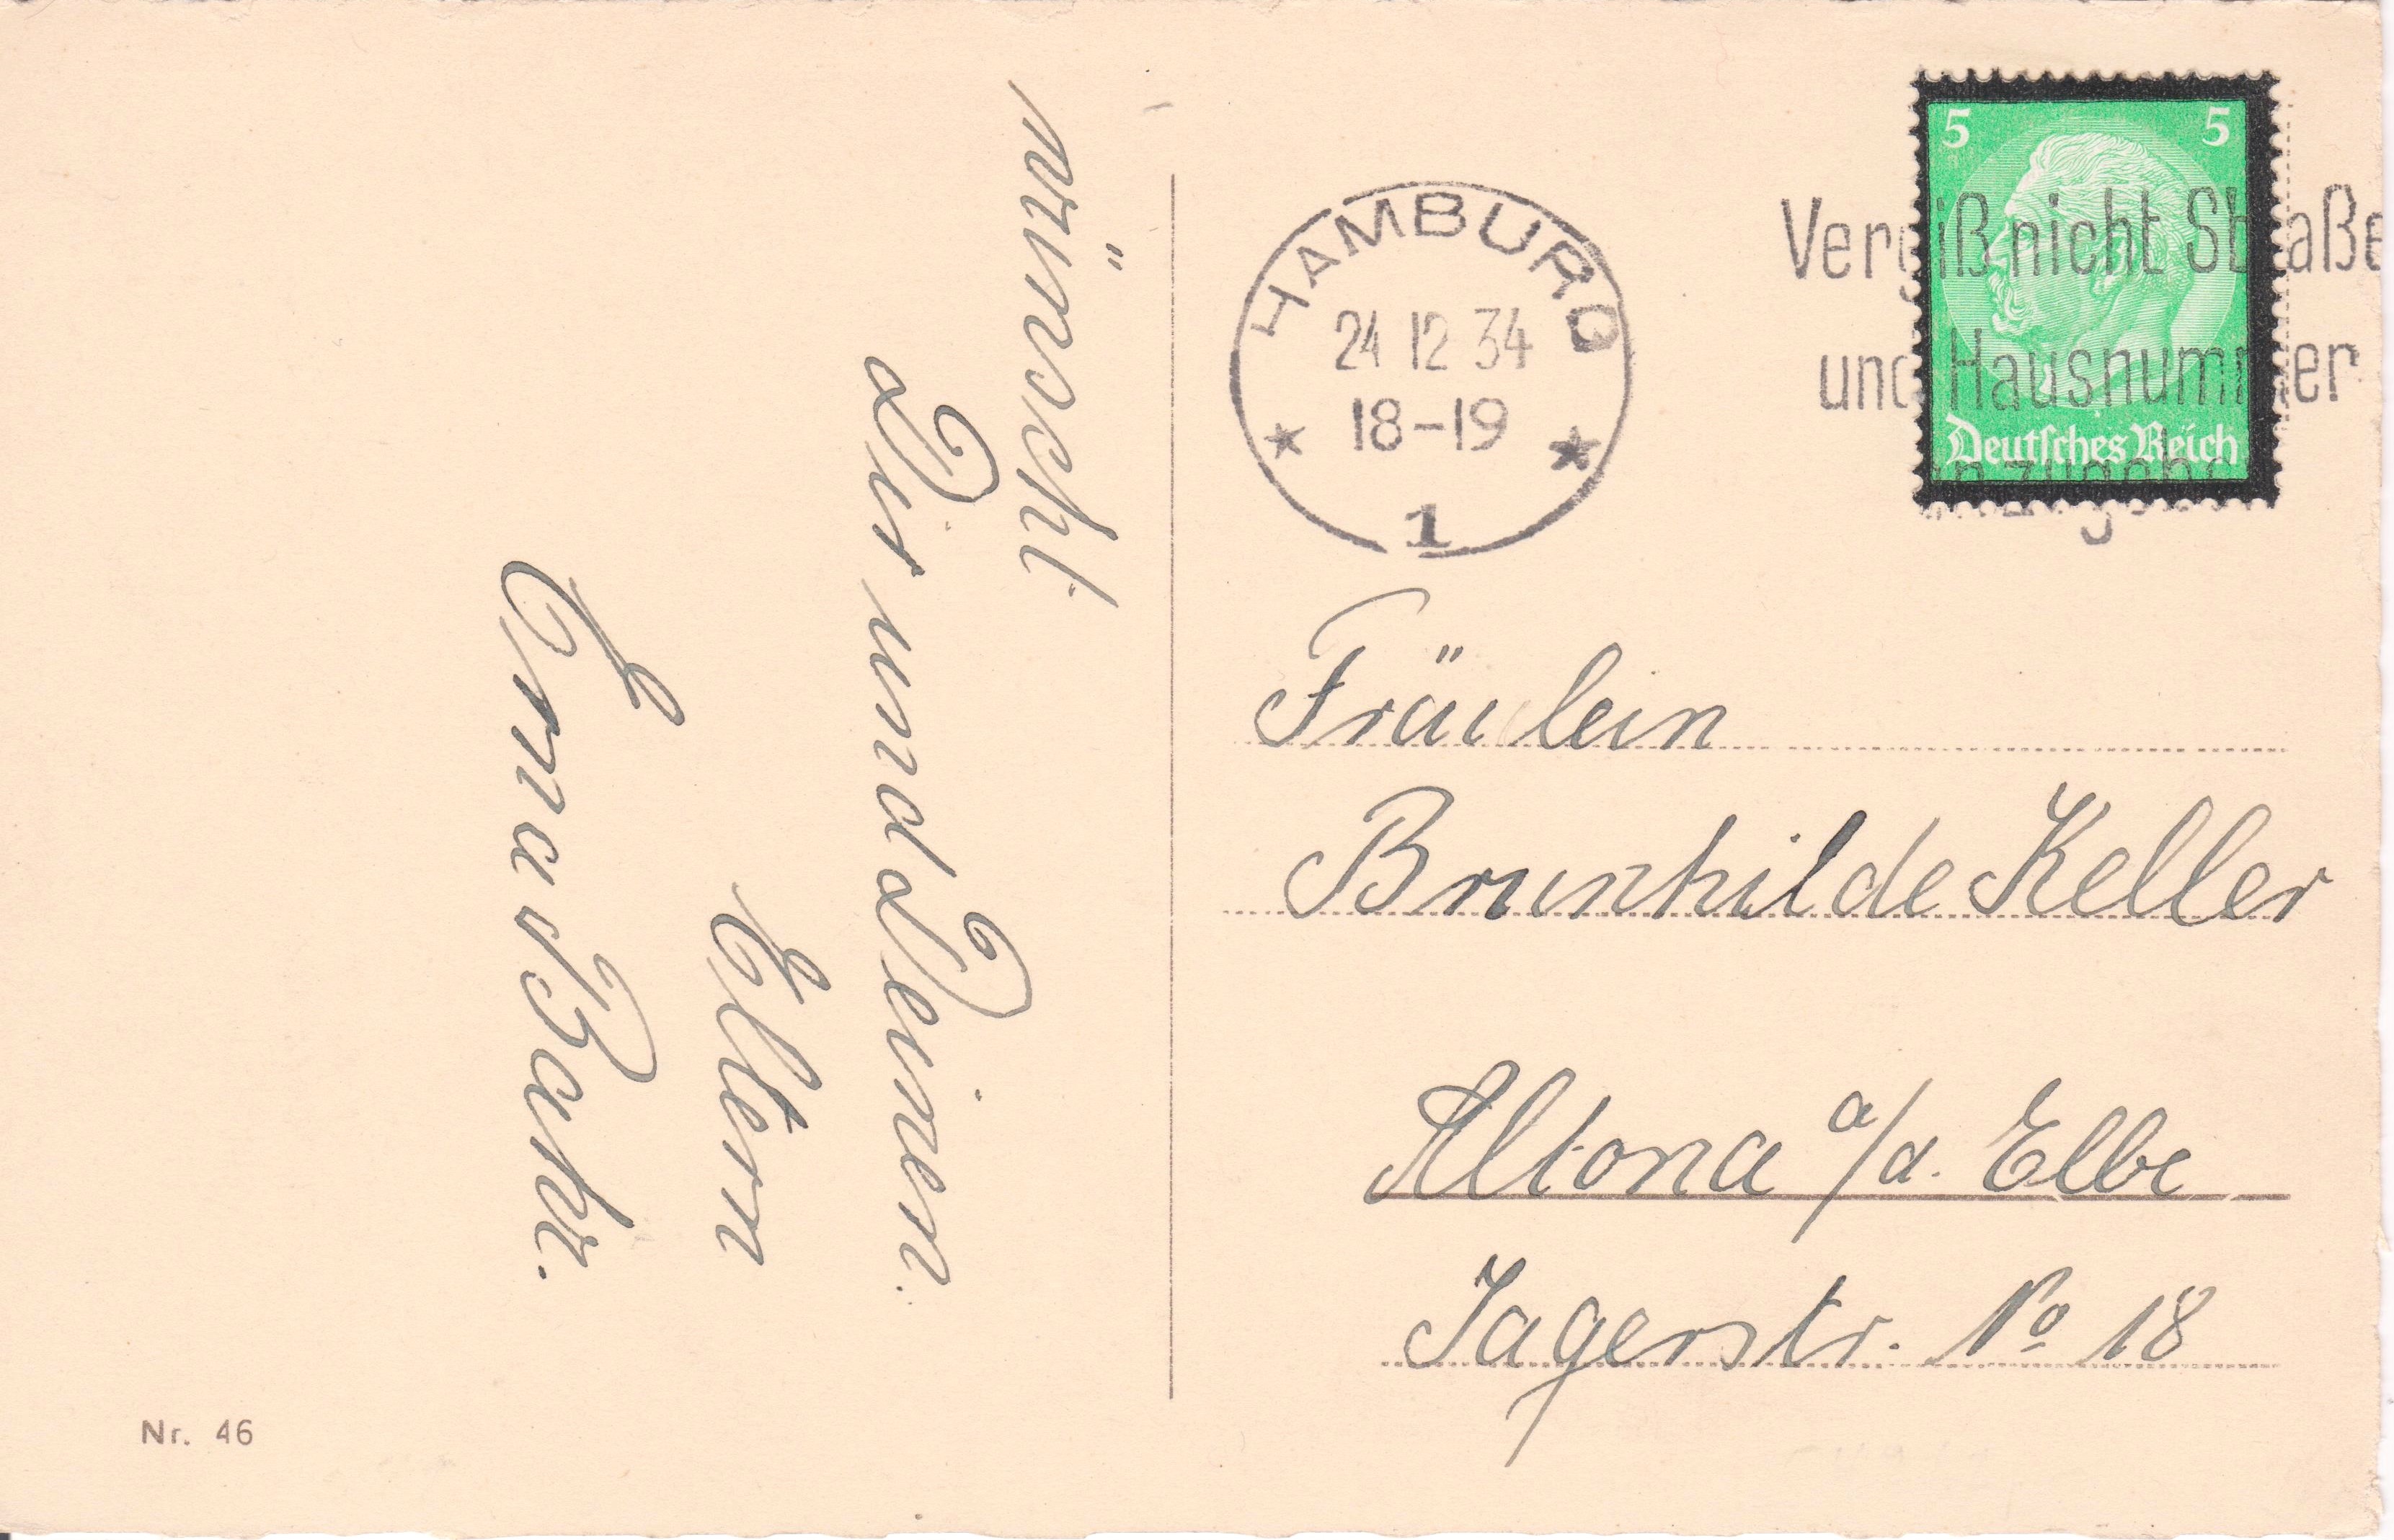 wünscht
Dir und Deinen
Eltern
Erna Bahr.
Nr. 46
HAMBURG
24 12 34
18-19
1
Vergiß nicht Straße
und Hausnummer
anzugeben
5 5
Deutsches Reich
Fräulein
Brunhilde Keller
Altona a/d. Elbe
Jägerstr. No 18